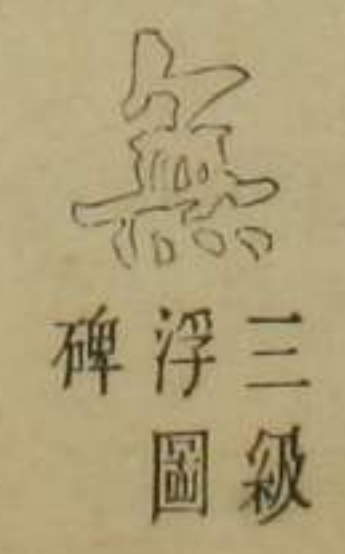 無
三級
浮圖
碑